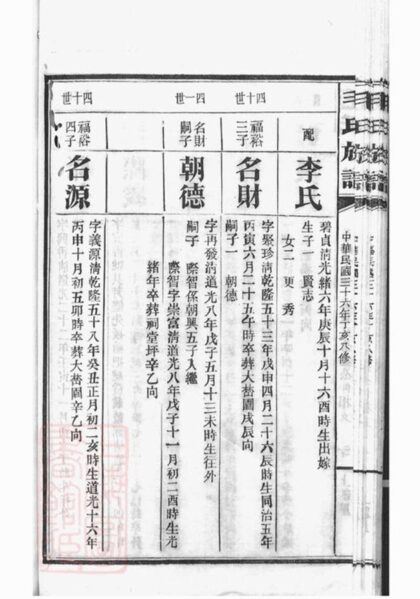 毛氏族譜
中華民國三十六年丁亥八修
配
李氏
碧貞清光緒六年庚辰十月十六酉時生出嫁
生子一 賢志
女二 更 秀
四十世
福裕三子
名財
字聚珍清乾隆五十三年戊申四月二十六辰時生同治五年
丙寅六月二十五午時卒葬大嵆圖戌辰向
嗣子一 朝德
四一世
名財嗣子
朝德
字再發清道光八年戊子五月十三未時生往外
嗣子 際智係朝興五子入繼
際智字崇富清道光八年戊子十一月初二酉時生光
緒年卒葬祠堂坪辛乙向
四十世
福裕四子
名源
字義源清乾隆五十八年癸丑正月初二亥時生道光十六年
丙申十月初五卯時卒葬大嵆圖辛乙向